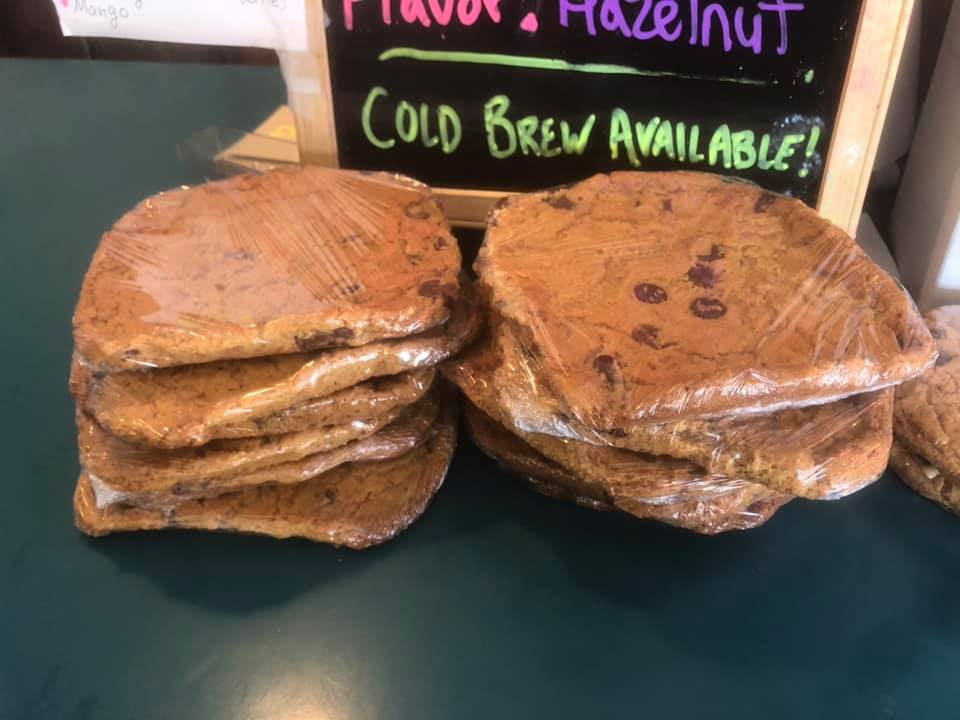 Mango
Flavor: Hazelnut
COLD BREW AVAILABLE!